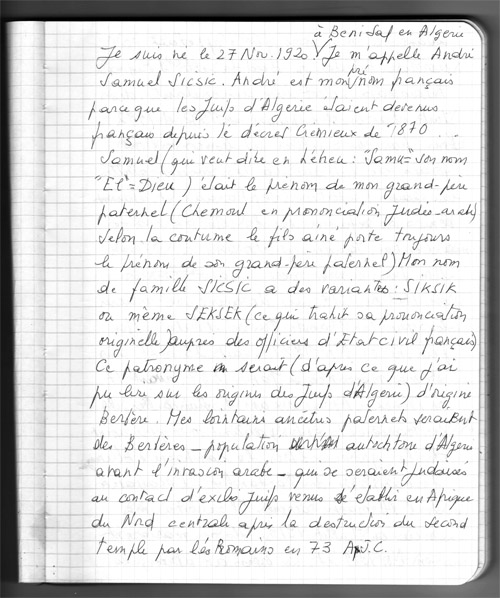 à Beni Saf en Algerie
Je suis né le 27 Nov. 1920 √ Je m'appelle André
Samuel SICSIC. André est mon prénom français
parce que les Juifs d'Algerie étaient devenus
français depuis le décret Crémieux de 1870 ...
Samuel (qui veut dire en Hebreu : "Samu"= son nom
"El"= Dieu) était le prénom de mon grand-père
paternel (Chemoul en prononciation Judéo-arabe)
Selon la coutume le fils ainé porte toujours
le prénom de son grand-père paternel) Mon nom
de famille SICSIC a des variantes : SIKSIK
ou même SEKSEK (ce qui trahit sa prononciation
originelle) auprès des officiers d'Etat civil français)
Ce patronyme serait (d'après ce que j'ai
pu lire sur les origines des Juifs d'Algerie) d'origine
Berbère. Mes lointains ancêtres paternels seraient
des Berbères - population autochtone d'Algerie
avant l'invasion arabe - qui se seraient Judaïsés
au contact d'exilés Juifs venus s'etablir en Afrique
du Nord centrale après la destruction du second
temple par les Romains en 73 Ap J.C.